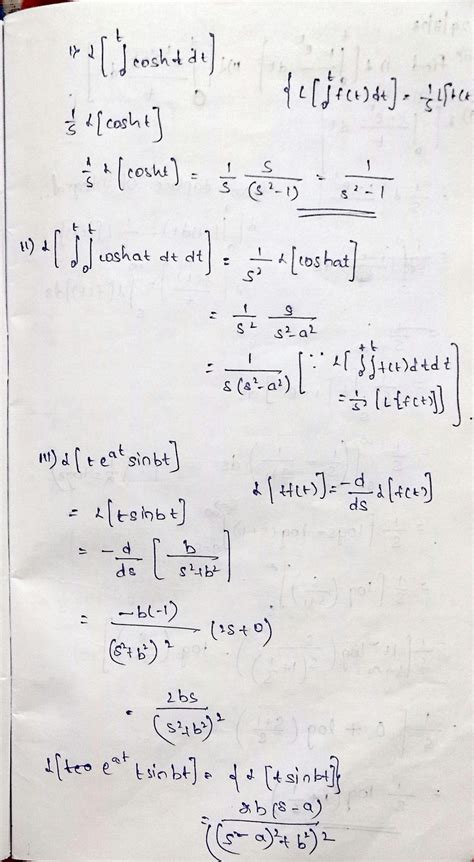 i) L[∫₀ᵗ cosht dt]
{L[∫₀ᵗ f(t) dt] = 1/s L[f(t
1/s L[cosht]
1/s L[cosht] = 1/s s/(s²-1) = 1/(s²-1)
ii) L[∫₀ᵗ∫₀ᵗ coshat dt dt] = 1/s² L[coshat]
= 1/s² s/(s²-a²)
= 1/(s(s²-a²)) [∵ L[∫₀ᵗ∫₀ᵗ f(t) dt dt]
= 1/s² [L{f(t)]]
iii) L[t eᵃᵗ sinbt]
L[tf(t)] = -d/ds L[f(t)]
= L[tsinbt]
= -d/ds [b/(s²+b²)]
= -b(-1)/(s²+b²)² (2s+0)
= 2bs/(s²+b²)²
L[eᵃᵗ tsinbt] = {L[tsinbt]}
= 2b(s-a)/((s-a)²+b²)²